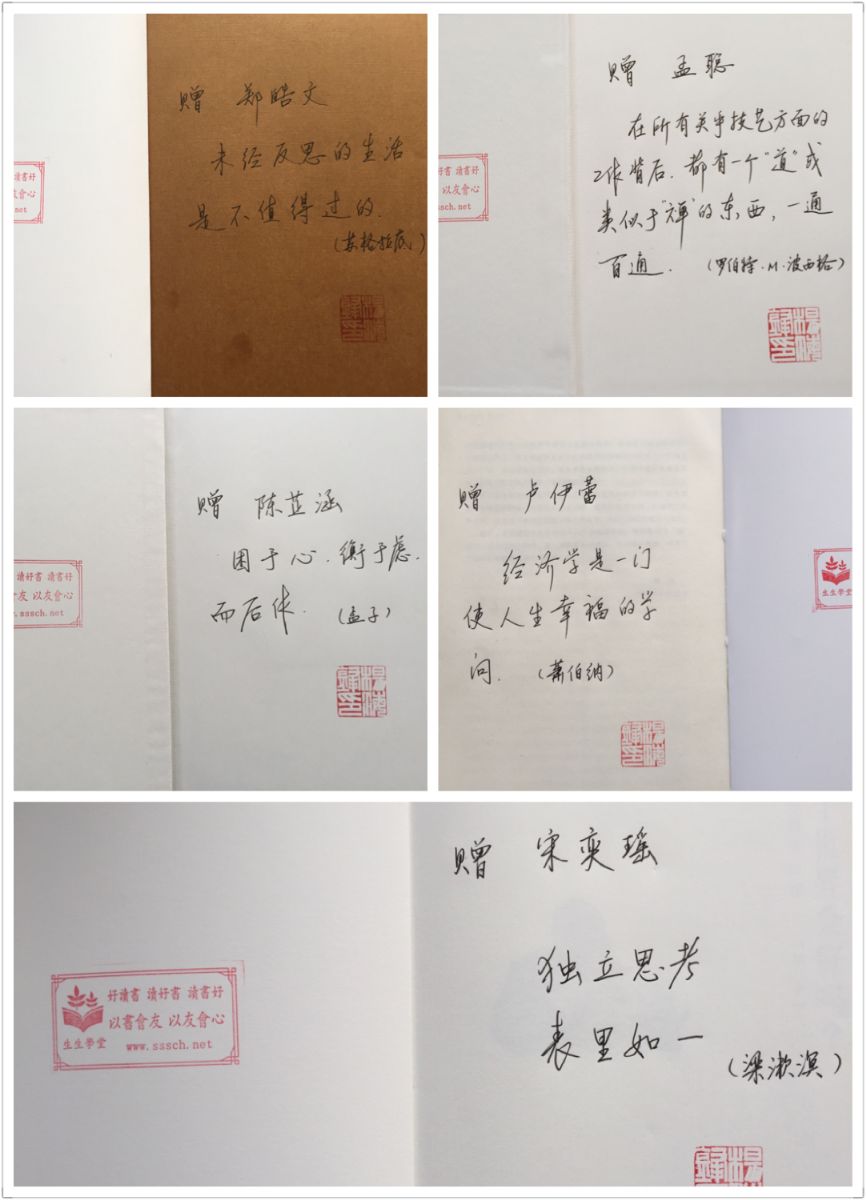 赠 郑皓文
未经反思的生活
是不值得过的.
(苏格拉底)
讀書好
以友會心
.net
赠 孟聪
在所有关乎技艺方面的
工作背后.都有一个"道"或
类似于"禅"的东西,一通
百通. (罗伯特.M.波西格)
好書 讀書好
以友會心
sch.net
赠 陈芷涵
困于心.衡于虑.
而后作. (孟子)
讀好書 讀書好
會友 以友會心
w.sssch.net
赠 卢伊蕾
经济学是一门
使人生幸福的学
问. (萧伯纳)
生生學堂
赠 宋奕瑶
独立思考
表里如一
(梁漱溟)
好讀書 讀好書 讀書好
以書會友 以友會心
生生學堂 www.sssch.net